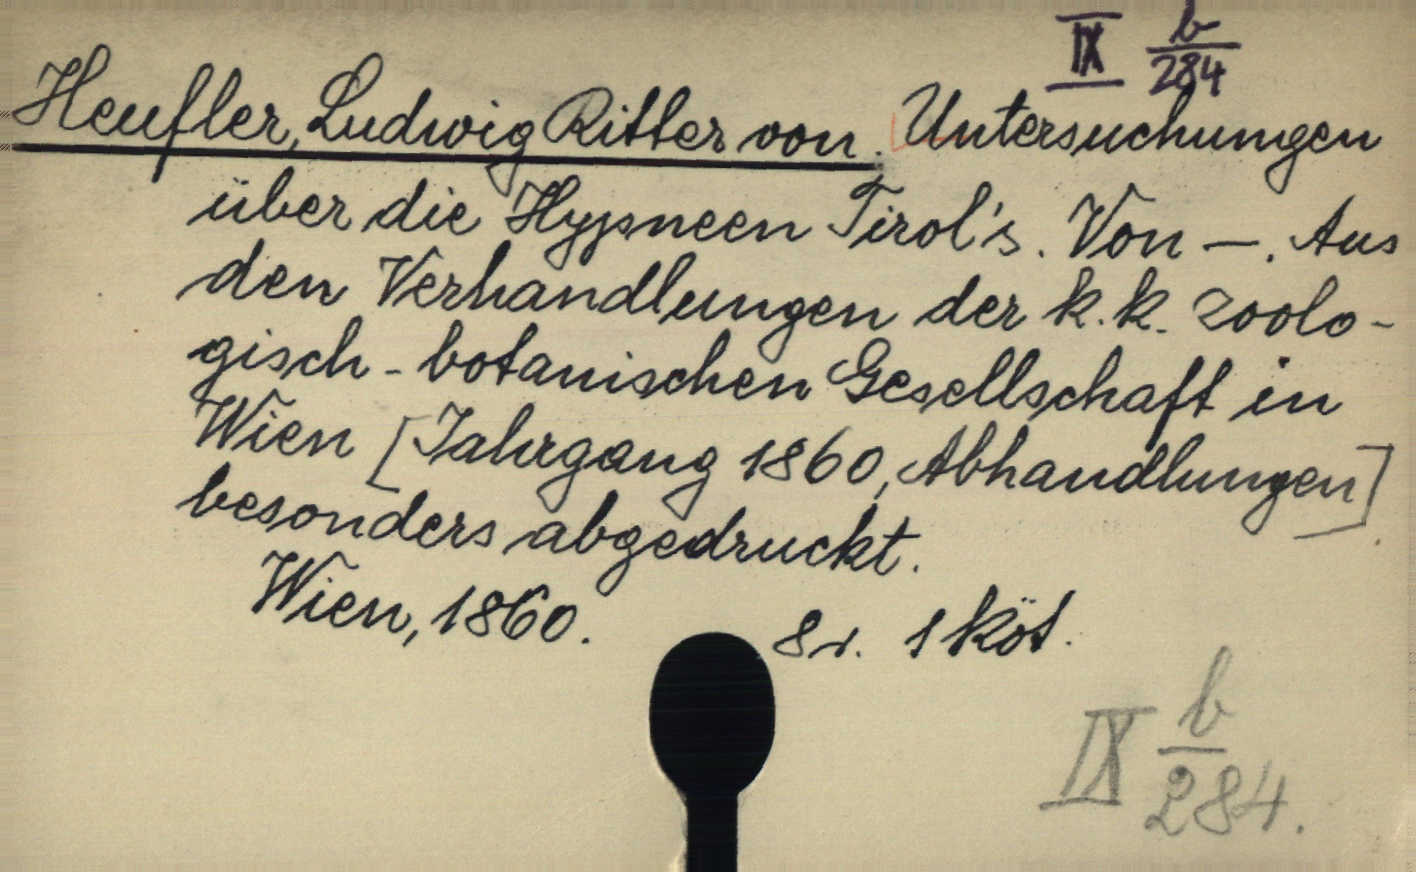 IX b/284
Heufler, Ludwig Ritter von. Untersuchungen
über die Hypneen Tirol's. Von —. Aus
den Verhandlungen der k. k. zoolo-
gisch-botanischen Gesellschaft in
Wien [Jahrgang 1860, Abhandlungen]
besonders abgedruckt.
Wien, 1860. 8r. 1 Köt.
IX b/284.